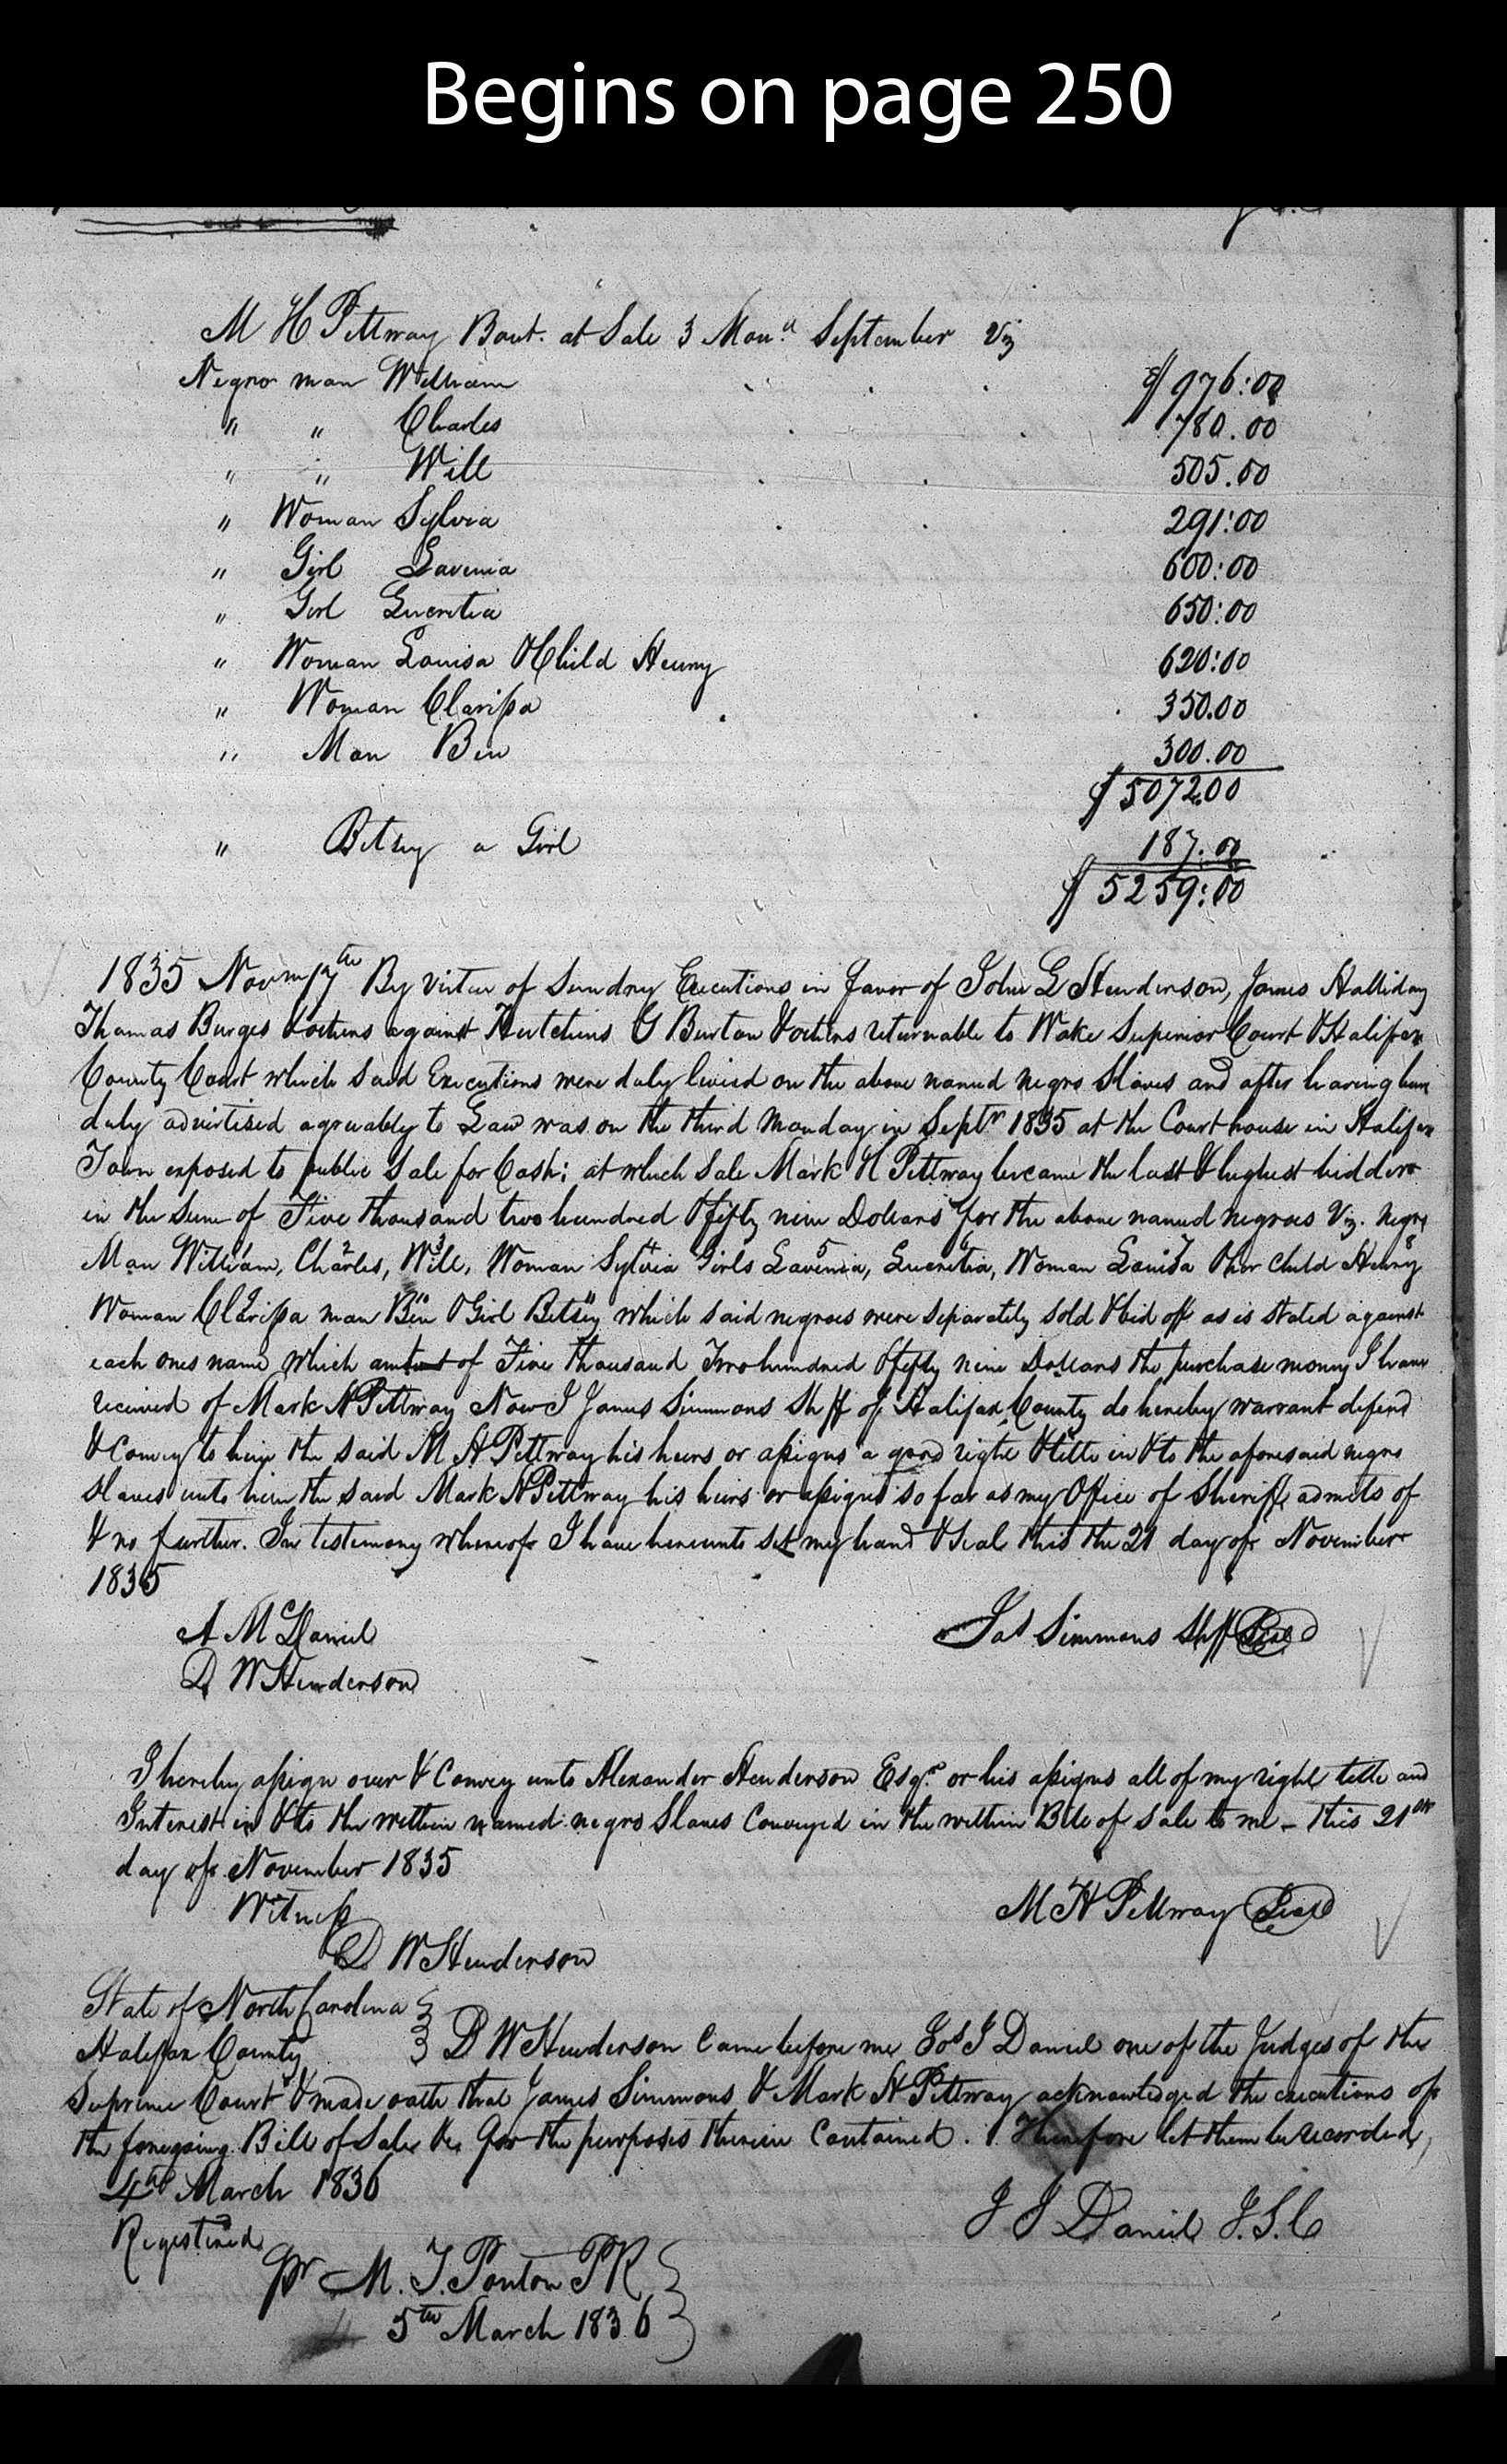 Begins on page 250
M H Pittway Bout. at Sale 3 Mond September Viz
Negro man William $ 976:00
" " Charles 780.00
" " Will 505.00
" Woman Sylvia 291:00
" Girl Lavenia 600:00
" Girl Lucretia 650:00
" Woman Louisa & Child Henry 620:00
" Woman Clarissa 350.00
" Man Ben 300.00
$ 5072.00
" Betsey a Girl 187.00
$ 5259:00
1835 Novm 17th By virtue of Sundry Executions in favor of John L Henderson, James Halliday
Thomas Burges & others against Hutchins G Burton & others returnable to Wake Superior Court & Halifax
County Court which said Executions were duly levied on the above named negro Slaves and after having been
duly advertised agreeably to Law was on the third Monday in Septr 1835 at the Court house in Halifax
Town exposed to public Sale for Cash; at which Sale Mark H Pittway became the last & highest bidder
in the Sum of Five thousand two hundred & fifty nine Dollars for the above named negroes Viz. Negro
Man William,1 Charles,2 Will,3 Woman Sylvia4 Girls Lavenia,5 Lucretia,6 Woman Louisa7 & her child Henry8
Woman Clarissa9 man Ben10 & Girl Betsey11 which said negroes were separately sold & bid off as is stated against
each ones name which amount of Five thousand Two hundred & fifty nine Dollars the purchase money I have
received of Mark H Pittway Now I James Simmons Shff of Halifax County do hereby warrant defend
& Convey to him the said M H Pittway his heirs or assigns a good right & title in & to the aforesaid negro
slaves unto him the said Mark H Pittway his heirs or assigns so far as my Office of Sheriff admits of
& no further. In testimony whereof I have hereunto set my hand & seal this the 21 day of November
1835
A McDaniel Jas Simmons Shff Seal
D W Henderson
I hereby assign over & Convey unto Alexander Henderson Esqr. or his assigns all of my right title and
Interest in & to the within named negro Slaves Conveyed in the within Bill of Sale to me - this 21st
day of November 1835
Witness M H Pittway Seal
D W Henderson
State of North Carolina
Halifax County D W Henderson Came before me Jos J Daniel one of the Judges of the
Supreme Court & made oath that James Simmons & Mark H Pittway acknowledged the executions of
the foregoing Bill of Sale &c for the purposes therein Contained. Therefore let them be recorded,
4th March 1836
J J Daniel J.S.C
Registered
pr M. T. Ponton PR
5th March 1836